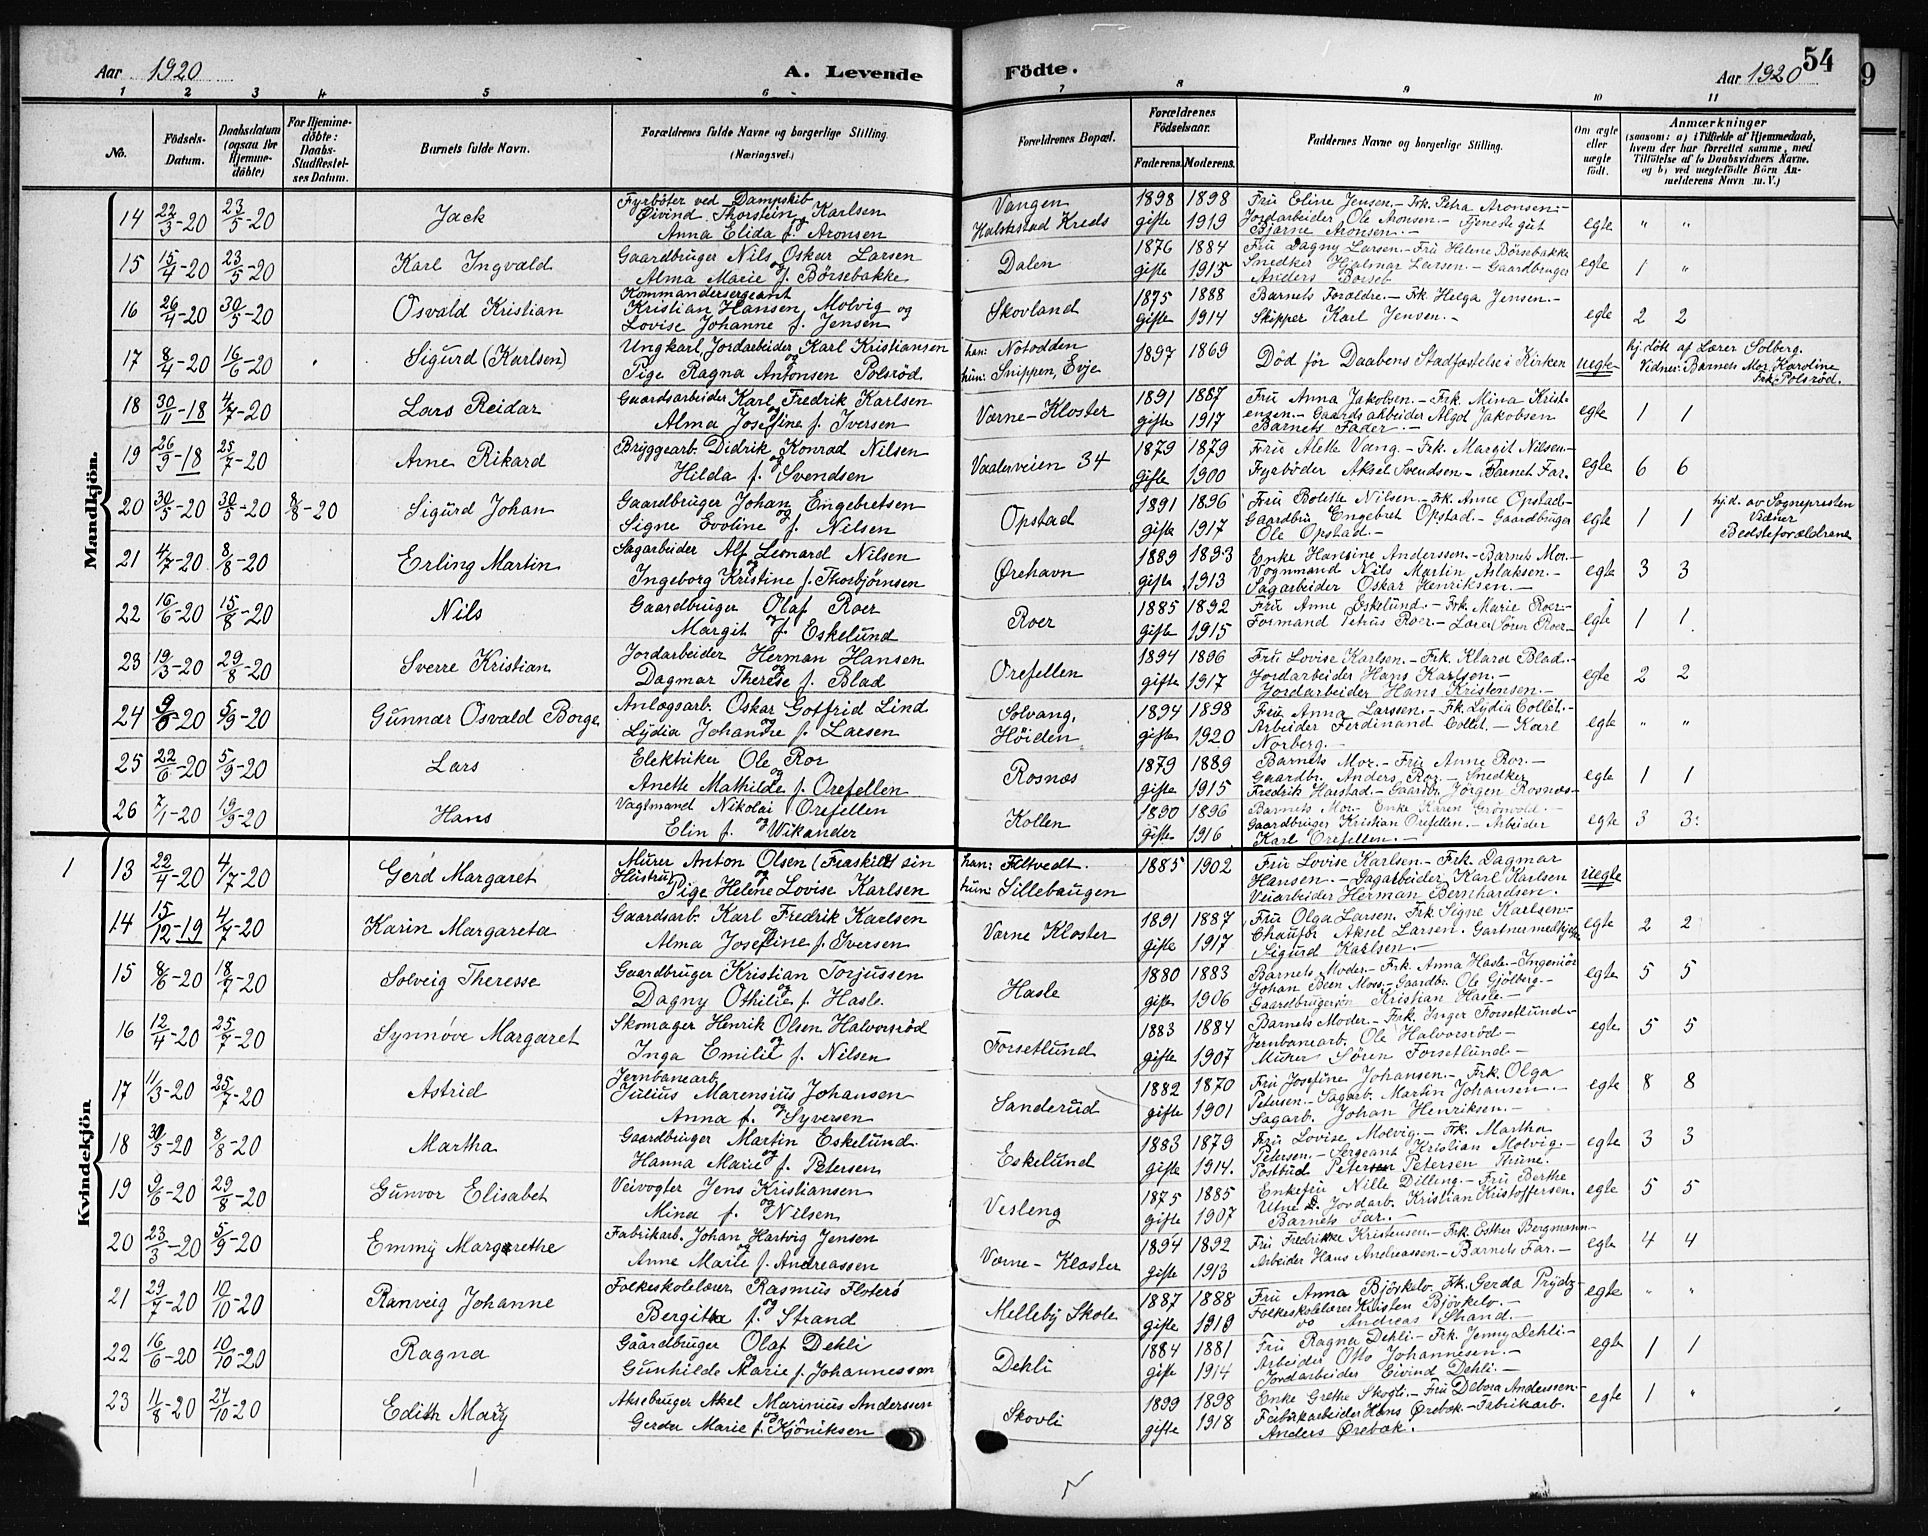 Aar 1920 A. Levende Födte. Aar 1920 54
9
1 2 3 4 5 6 7 8 9 10 11
No. Födsels-Datum. Daabsdatum (ogsaa for Hjemme-döbte) For Hjemme-döbte: Daabs-Stadfæstel-ses Datum. Barnets fulde Navn. Forældrenes fulde Navne og borgerlige Stilling. (Næringsvei.) Forældrenes Bopæl. Forældrenes Födselsaar. Faderens. Moderens. Faddernes Navne og borgerlige Stilling. Om ægte eller uægte födt. Anmærkninger (saasom: a) i Tilfælde af Hjemmedaab, hvem der har forrettet samme, med Tilföielse af to Daabsvidners Navne. og b) ved uegtefödte Börn An-melderens Navn m. V.)
Mandkjön.
14 22/3-20 23/5-20 Jack Fyrbøter ved Dampskib Øivind Thorstein Karlsen og Anna Elida f. Aronsen Vangen Halmstad Kreds 1898 1898 gifte 1919 Fru Eline Jensen.- Frk. Petra Aronsen.- Jordarbeider Ole Aronsen.- Tjenestegut Bjarne Aronsen.- egte " "
15 15/4-20 23/5-20 Karl Ingvald Gaardbruger Nils Oskar Larsen og Alma Marie f. Børsebakke Dalen 1876 1884 gifte 1915 Fru Dagny Larsen.- Fru Helene Børsebakke Snedker Hjalmar Larsen.- Gaardbruger Anders Børseb egte 1 "
16 26/4-20 30/5-20 Osvald Kristian Kommandersergeant Kristian Hansen Molvig og Lovise Johanne f. Jensen Skovland 1875 1888 gifte 1914 Barnets Forældre.- Frk Helga Jensen.- Skipper Karl Jensen.- egte 2 2
17 8/4-20 16/6-20 Sigurd (Karlsen) Ungkarl, Jordarbeider Karl Kristiansen og Pige Ragna Antonsen Polsrød han: Notodden hun: Snippen, Evje 1897 1869 Død før Daabens Stadfæstelse i Kirken uegte hj.døbt af Lærer Solberg. Vidner: Barnets Mor, Karoline Frk. Polsrød.
18 30/11-18 4/7-20 Lars Reidar Gaardsarbeider Karl Fredrik Karlsen og Alma Josefine f. Iversen Værne-Kloster 1891 1887 gifte 1917 Fru Anna Jakobsen.- Frk. Mina Krist-ensen.- Gaardsarbeider Algot Jakobsen Barnets Fader.- egte 1 1
19 26/9-18 25/7-20 Arne Rikard Bryggearb. Didrik Konrad Nilsen og Hilda f. Svendsen Vaalerveien 34 1879 1879 gifte 1900 Fru Alette Vang.- Frk. Margit Nilsen- Fyrbøder Aksel Svendsen- Barnet Far. egte 6 6
20 30/5-20 30/5-20 8/8-20 Sigurd Johan Gaardbruger Johan Engebretsen og Signe Evoline f. Nilsen Opstad 1891 1896 gifte 1917 Fru Bolette Nilsen.- Frk. Anne Opstad- Gaardbru Engebret Opstad.- Gaardbruger Ole Opstad.- egte 1 1 hj.d. av Sognepresten Vidner Bedsteforældrene
21 4/7-20 8/8-20 Erling Martin Sagarbeider Alf Leonard Nilsen og Ingeborg Kristine f. Thorbjørnsen Ørehavn 1889 1893 gifte 1913 Enke Hansine Anderssen.- Barnets Mor.- Vognmand Nils Martin Aslaksen.- Sagarbeider Oskar Henriksen.- egte 3 3
22 16/6-20 15/8-20 Nils Gaardbruger Olaf Roer og Margit f. Eskelund Roer 1885 1892 gifte 1915 Fru Anne Eskelund.- Frk. Marie Roer.- Formand Petrus Roer.- Lærer Søren Roer- egte 1 1
23 19/3-20 29/8-20 Sverre Kristian Jordarbeider Herman Hansen og Dagmar Therese f. Blad Orefellen 1894 1896 gifte 1917 Fru Lovise Karlsen.- Frk. Klara Blad.- Jordarbeider Hans Karlsen.- Jordarbeider Hans Kristensen.- egte 2 2
24 9/6-20 5/9-20 Gunnar Osvald Borge Anlægsarb. Oskar Gotfrid Lind og Lydia Johandre f. Larsen Solvang, Høiden 1894 1898 gifte 1920 Fru Anna Larssen.- Fk. Lydia Collet.- Arbeider Ferdinand Collet.- Karl Norberg.- egte " "
25 22/6-20 5/9-20 Lars Elektriker Ole Ror og Anette Mathilde f. Orefellen Rosnæs 1879 1889 gifte 1915 Barnets Mor.- Fru Anne Ror.- Gaardbr. Anders Ror.- Snedker Fredrik Harstad.- Gaardbr. Jørgen Rosnæs- egte 1 1
26 7/1-20 19/9-20 Hans Vagtmand Nikolai Orefellen og Elin f. Wikander Kollen 1890 1896 gifte 1916 Barnets Mor- Enke Karen Grønvold.- Gaardbruger Kristian Orefellen.- Arbeider Karl Orefellen.- egte 3 3
Kvindekjön
1 13 22/4-20 4/7-20 Gerd Margaret Murer Anton Olsen (Fraskilt sin Hustru) og Pige Helene Lovise Karlsen han: Filtvedt. hun: Sillebaugen 1885 1902 Fru Lovise Karlsen- Frk. Dagmar Hansen.- Sagarbeider Karl Karlsen Veiarbeider Herman Bernhardsen. uegte
14 15/12-19 4/7-20 Karin Margareta Gaardsarb. Karl Fredrik Karlsen og Alma Josefine f. Iversen Værne Kloster 1891 1887 gifte 1917 Fru Olga Larsen. Frk Signe Karlsen- Chaufør Aksel Larsen. Gartnermedhj Sigurd Karlsen.- egte 2 2
15 8/6-20 18/7-20 Solveig Theresse Gaardbruger Kristian Torjussen og Dagny Othilie f. Hasle. Hasle 1880 1883 gifte 1906 Barnets Moder- Frk. Anna Hasle- Ingeniør Johan Been Moss- Gaardbr. Ole Gjølberg.- Gaardbrugersøn Kristian Hasle.- egte 5 5
16 12/4-20 25/7-20 Synnøve Margaret Skomager Henrik Olsen Halvorsrød og Inga Emilie f. Nilsen Forsetlund 1883 1884 gifte 1907 Barnets Moder- Frk. Inger Forsetlund- Jernbanearb. Ole Halvorsrød- Murer Søren Forsetlund- egte 5 5
17 11/3-20 25/7-20 Astrid Jernbanearb. Julius Marensius Johansen og Anna f. Syversen Sanderud 1882 1870 gifte 1901 Fru Josefine Johansen.- Frk. Olga Petersen.- Sagarb. Martin Johansen.- Sagarb. Johan Henriksen.- egte 8 8
18 30/5-20 8/8-20 Martha Gaardbruger Martin Eskelund. og Hanna Marie f. Petersen Eskelund 1883 1879 gifte 1914. Fru Lovise Molvig.- Frk. Martha Petersen.- Sergeant Kristian Molvig.- Postbud Peter Petersen Thune. egte 3 3
19 9/6-20 29/8-20 Gunvor Elisabet Veivogter Jens Kristiansen og Mina f. Nilsen Vesleng 1875 1885 gifte 1907 Enkefru Nille Dilling- Fru Berthe Utne. Jordarb. Kristian Kristoffersen. Barnets Far.- egte 5 5
20 23/3-20 5/9-20 Emmy Margrethe Fabrikarb. Johan Hartvig Jensen og Anne Marie f. Andreassen Værne-Kloster 1894 1892 gifte 1913 Fru Fredrikke Kristensen- Frk. Esther Bergmann- Arbeider Hans Andreassen.- Barnets Far.- egte 4 4
21 29/7-20 10/10-20 Ranveig Johanne Folkeskolelærer Rasmus Floterø og Bergitta f. Strand Melleby Skole 1887 1888 gifte 1919 Fru Anna Bjørkelo. Frk. Gerda Prydz- Folkeskolelærer Kristen Bjørkelo.- og Andreas Strand.- egte " "
22 16/6-20 10/10-20 Ragna Gaardbruger Olaf Dehli og Gunhilde Marie f. Johannessen Dehli 1884 1881 gifte 1914 Fru Ragna Dehli.- Frk. Jenny Dehli.- Arbeider Otto Johannesen.- Jordarbeider Eivind Dehli.- egte 1 1
23 11/8-20 24/10-20 Edith Mary Akel Marinius Anderssen og Gerda Marie f. Kjöniksen Skovli 1899 1898 gifte 1918 Enke Grethe Skogli.- Fru Debora Anderssen- Fabrikarbeider Hans Ørebæk.- Fabrikarb. Anders Ørebæk. egte 1 "